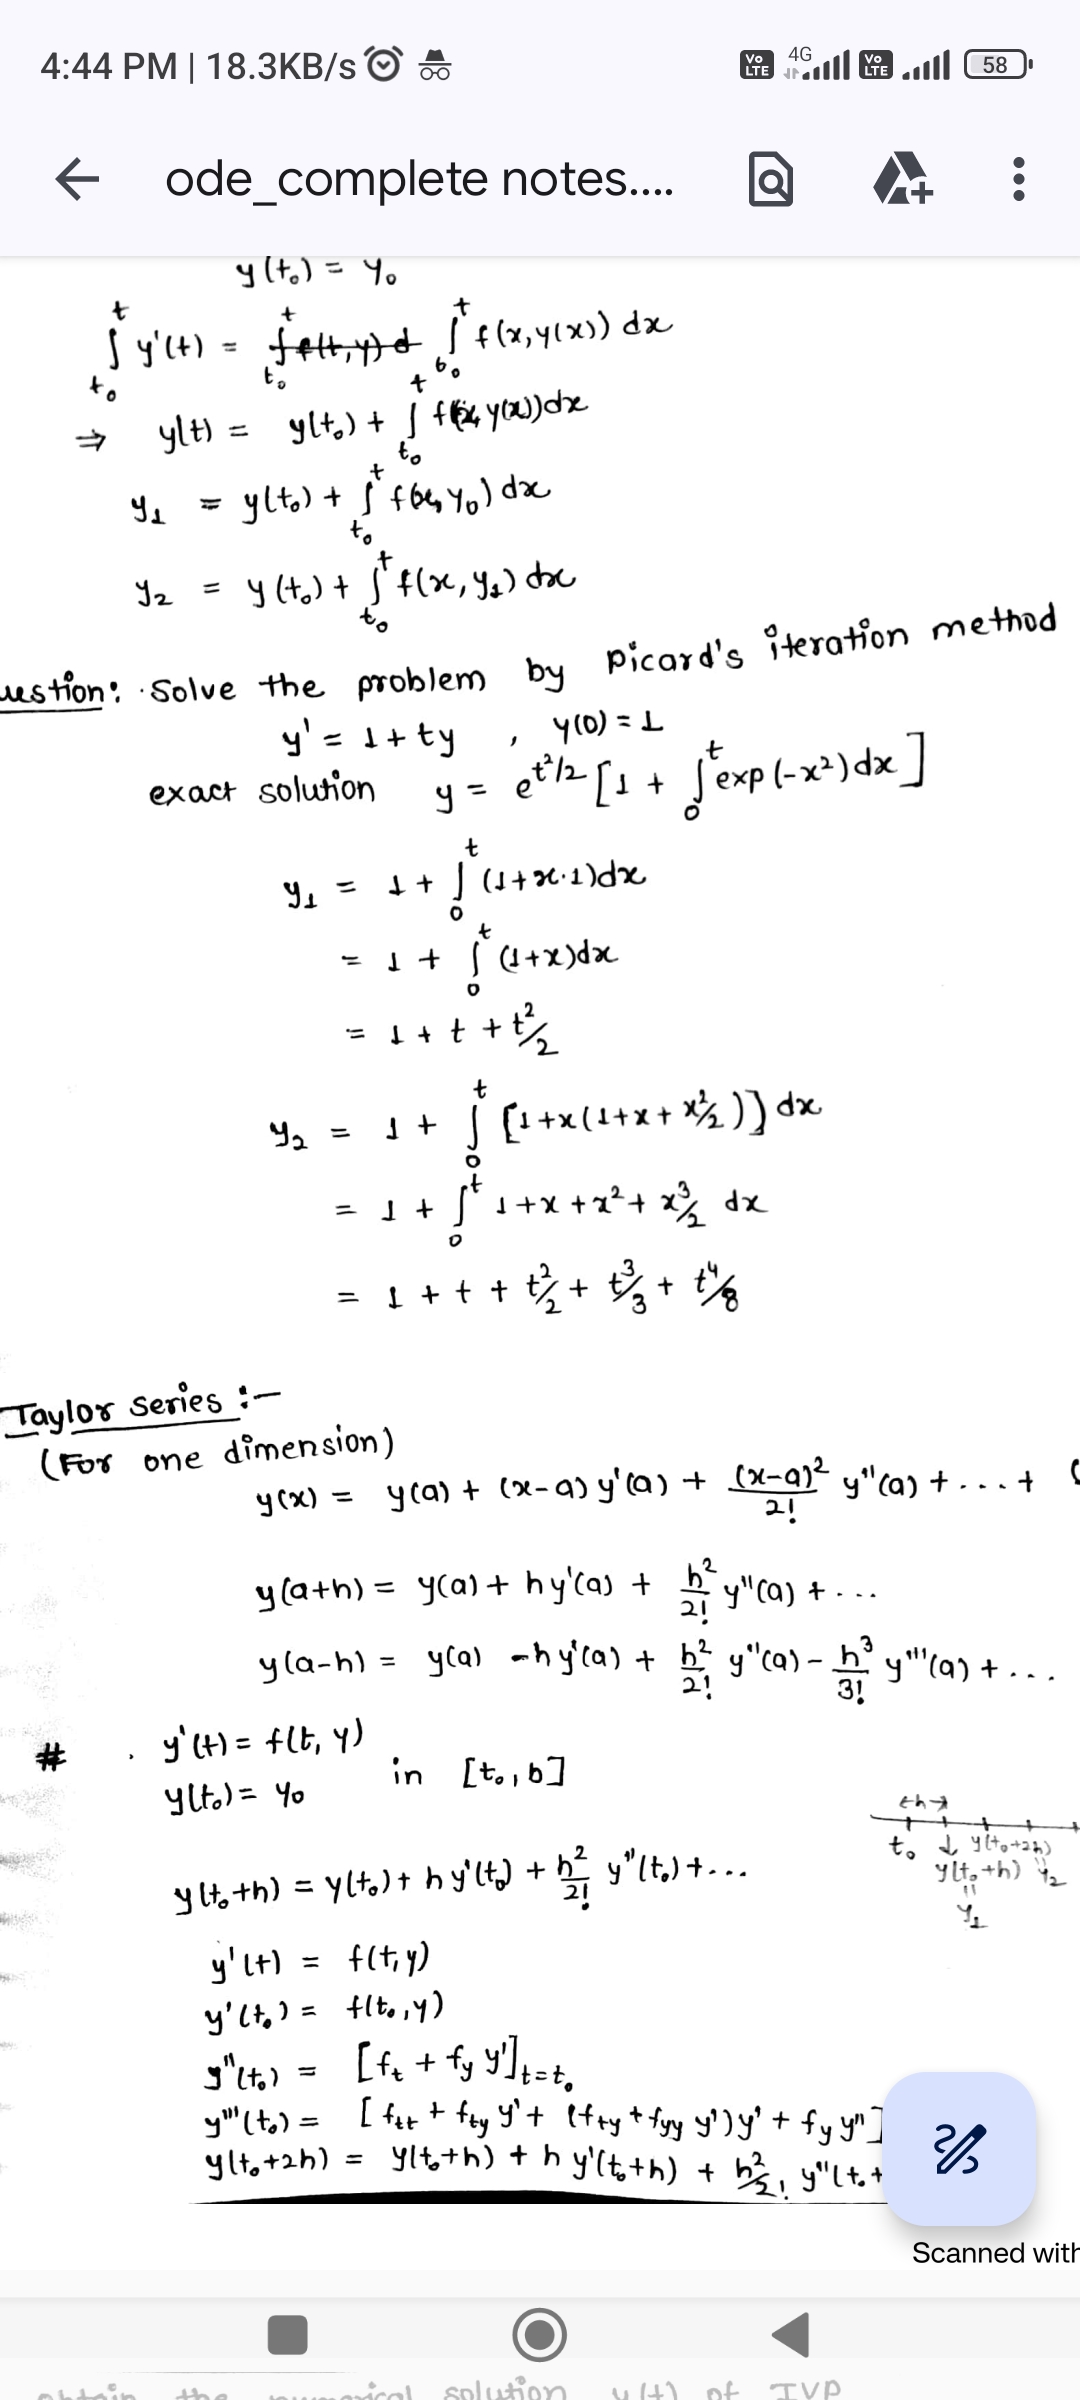 4:44 PM | 18.3KB/s Vo LTE 4G Vo LTE 58
ode_complete notes....
y(t₀) = y₀
∫_{t₀}^{t} y'(t) = ∫_{t₀}^{t} f(x, y(x)) dx
⇒ y(t) = y(t₀) + ∫_{t₀}^{t} f(x, y(x)) dx
y₁ = y(t₀) + ∫_{t₀}^{t} f(x, y₀) dx
y₂ = y(t₀) + ∫_{t₀}^{t} f(x, y₁) dx
uestion: Solve the problem by Picard's iteration method
y' = 1 + ty , y(0) = 1
exact solution y = e^{t²/2} [1 + ∫_0^t exp(-x²) dx]
y₁ = 1 + ∫_0^t (1+x·1) dx
= 1 + ∫_0^t (1+x) dx
= 1 + t + t²/2
y₂ = 1 + ∫_0^t [1+x(1+x+x²/2)] dx
= 1 + ∫_0^t 1+x+x²+x³/2 dx
= 1 + t + t²/2 + t³/3 + t⁴/8
Taylor Series :-
(For one dimension)
y(x) = y(a) + (x-a) y'(a) + (x-a)²/2! y''(a) + ... + (
y(a+h) = y(a) + hy'(a) + h²/2! y''(a) + ...
y(a-h) = y(a) - hy'(a) + h²/2! y''(a) - h³/3! y'''(a) + ...
# . y'(t) = f(t, y)
y(t₀) = y₀ in [t₀, b]
←h→
t₀ ↓ y(t₀+2h)
y(t₀+h) y₂
॥
y₁
y(t₀+h) = y(t₀) + hy'(t₀) + h²/2! y''(t₀) + ...
y'(t) = f(t, y)
y'(t₀) = f(t₀, y)
y''(t₀) = [f_t + f_y y']_{t=t₀}
y'''(t₀) = [f_tt + f_ty y' + (f_ty + f_yy y')y' + f_y y'']
y(t₀+2h) = y(t₀+h) + h y'(t₀+h) + h²/2! y''(t₀+
Scanned with
obtain the numerical solution y(t) of IVP